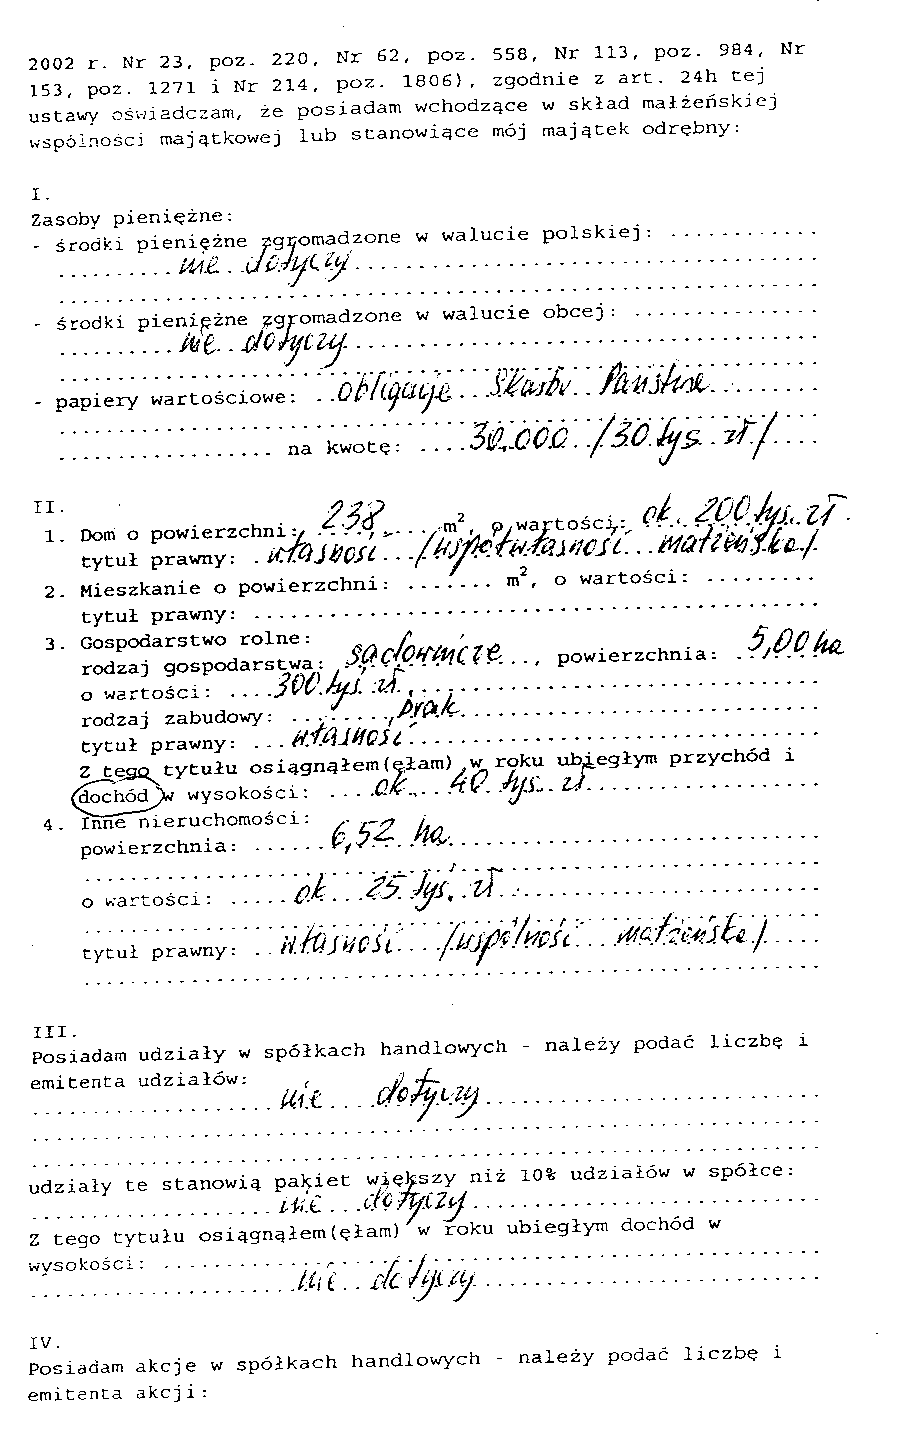 2002 r. Nr 23, poz. 220, Nr 62, poz. 558, Nr 113, poz. 984, Nr
153, poz. 1271 i Nr 214, poz. 1806), zgodnie z art. 24h tej
ustawy oświadczam, że posiadam wchodzące w skład małżeńskiej
wspólności majątkowej lub stanowiące mój majątek odrębny:
I.
Zasoby pieniężne:
- środki pieniężne zgromadzone w walucie polskiej: ............
nie dotyczy
- środki pieniężne zgromadzone w walucie obcej: ...............
nie dotyczy
- papiery wartościowe: obligacje Skarbu Państwa
na kwotę: 30.000 /30 tys. zł/
II.
1. Dom o powierzchni: 238 m², o wartości: ok. 200 tys. zł
tytuł prawny: własność /współwłasność małżeńska/
2. Mieszkanie o powierzchni: ....... m², o wartości: .........
tytuł prawny: ................................................
3. Gospodarstwo rolne:
rodzaj gospodarstwa: sadownicze, powierzchnia: 5,00 ha
o wartości: 300 tys. zł
rodzaj zabudowy: brak
tytuł prawny: własność
Z tego tytułu osiągnąłem(ęłam) w roku ubiegłym przychód i
dochód w wysokości: ok. 40 tys. zł
4. Inne nieruchomości:
powierzchnia: 6,52 ha
o wartości: ok. 25 tys. zł
tytuł prawny: własność /wspólność małżeńska/
III.
Posiadam udziały w spółkach handlowych - należy podać liczbę i
emitenta udziałów:
nie dotyczy
udziały te stanowią pakiet większy niż 10% udziałów w spółce:
nie dotyczy
Z tego tytułu osiągnąłem(ęłam) w roku ubiegłym dochód w
wysokości: ...................................................
nie dotyczy
IV.
Posiadam akcje w spółkach handlowych - należy podać liczbę i
emitenta akcji: